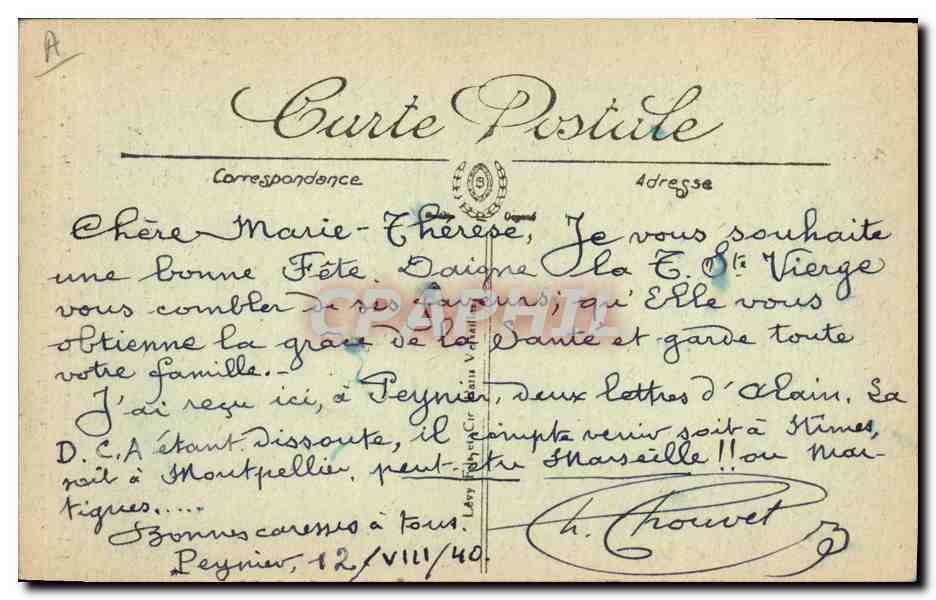 A
Carte Postale
Correspondance
Adresse
Chère Marie-Thérèse, Je vous souhaite
une bonne Fête. Daigne la T. Ste Vierge
vous combler de ses faveurs; qu'Elle vous
obtienne la grâce de la Santé et garde toute
votre famille.-
J'ai reçu ici, à Peynier, deux lettres d'Alain. La
D.C.A étant dissoute, il compte venir soit à Nîmes,
soit à Montpellier, peut-être Marseille!! ou Mar-
tigues.....
Bonnes caresses à tous.
Peynier, 12/VIII/40.
Ch. Chouvet
Lévy Fils et Cie Paris Versailles
CPAPHIL